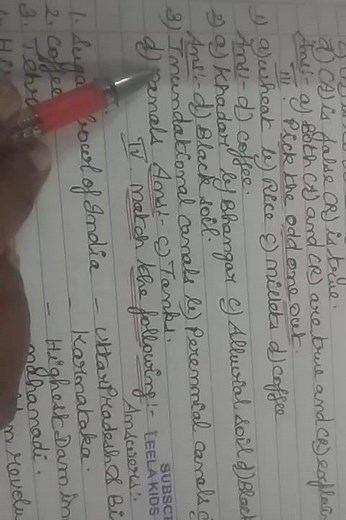 d) (A) is false (R) is true.
Ans:- a) Both (A) and (R) are true and (R) explain
III Pick the odd one out.
1) a) wheat b) Rice c) millets d) coffee
Ans:- d) coffee.
2) a) Khadar b) Bhangar c) Alluvial soil d) Black
Ans:- d) Black soil.
3) Inundational canals b) Perennial canals c)
d) canals Ans:- c) Tanks.
IV match the following:-
Answers:-
1. Sugar Bowl of India - Uttar Pradesh & Bi
2. Coffee - Karnataka.
3. Tehri - Highest Dam in
mahanadi.
Revolu
SUBSC
LEELA KIDS